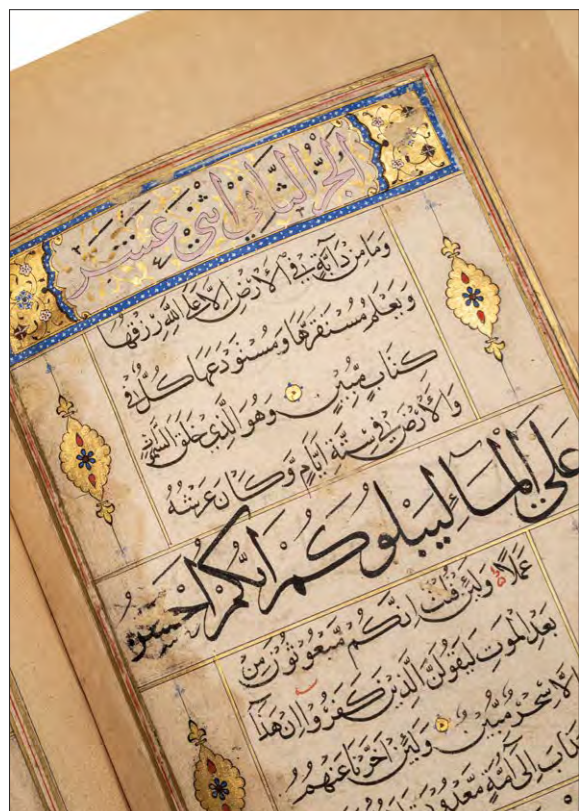 الجُزْءُ الثَّانِي اثْنِيْ عَشَرَ
وَمَا مِنْ دَابَّةٍ فِي الْاَرْضِ اِلَّا عَلَى اللّٰهِ رِزْقُهَا
وَيَعْلَمُ مُسْتَقَرَّهَا وَمُسْتَوْدَعَهَا كُلٌّ فِي
كِتَابٍ مُّبِيْنٍ وَهُوَ الَّذِيْ خَلَقَ السَّمٰوٰتِ
وَالْاَرْضَ فِي سِتَّةِ اَيَّامٍ وَّكَانَ عَرْشُهُ
عَلَي الْمَآءِ لِيَبْلُوَكُمْ اَيُّكُمْ اَحْسَنُ
عَمَلًا وَلَئِنْ قُلْتَ اِنَّكُمْ مَّبْعُوْثُوْنَ مِنْ
بَعْدِ الْمَوْتِ لَيَقُوْلَنَّ الَّذِيْنَ كَفَرُوْا اِنْ هٰذَا
اِلَّا سِحْرٌ مُّبِيْنٌ وَلَئِنْ اَخَّرْنَا عَنْهُمُ
اِلٰى اُمَّةٍ مَّعْدُوْدَةٍ